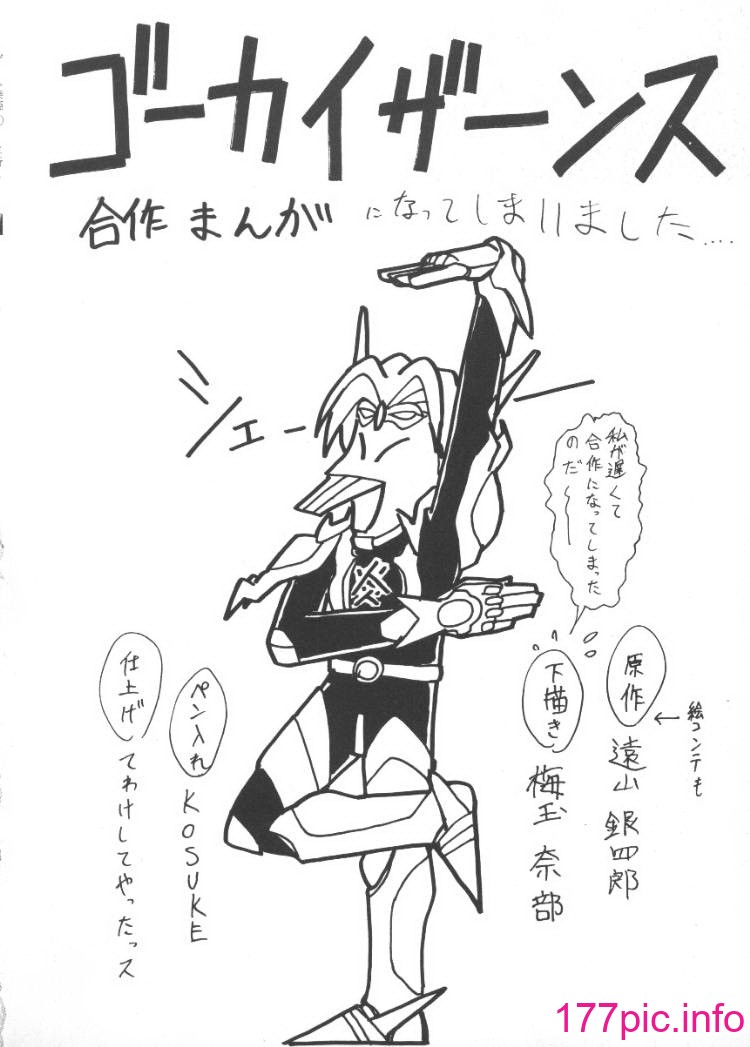 ゴーカイザーンス
合作まんがになってしまいました....
シェー
私が遅くて
合作になってしまった
のだ〜
絵コンテも
原作 遠山 銀四郎
下描き 梅玉 奈部
ペン入れ KOSUKE
仕上げ てわけしてやったっス
177pic.info